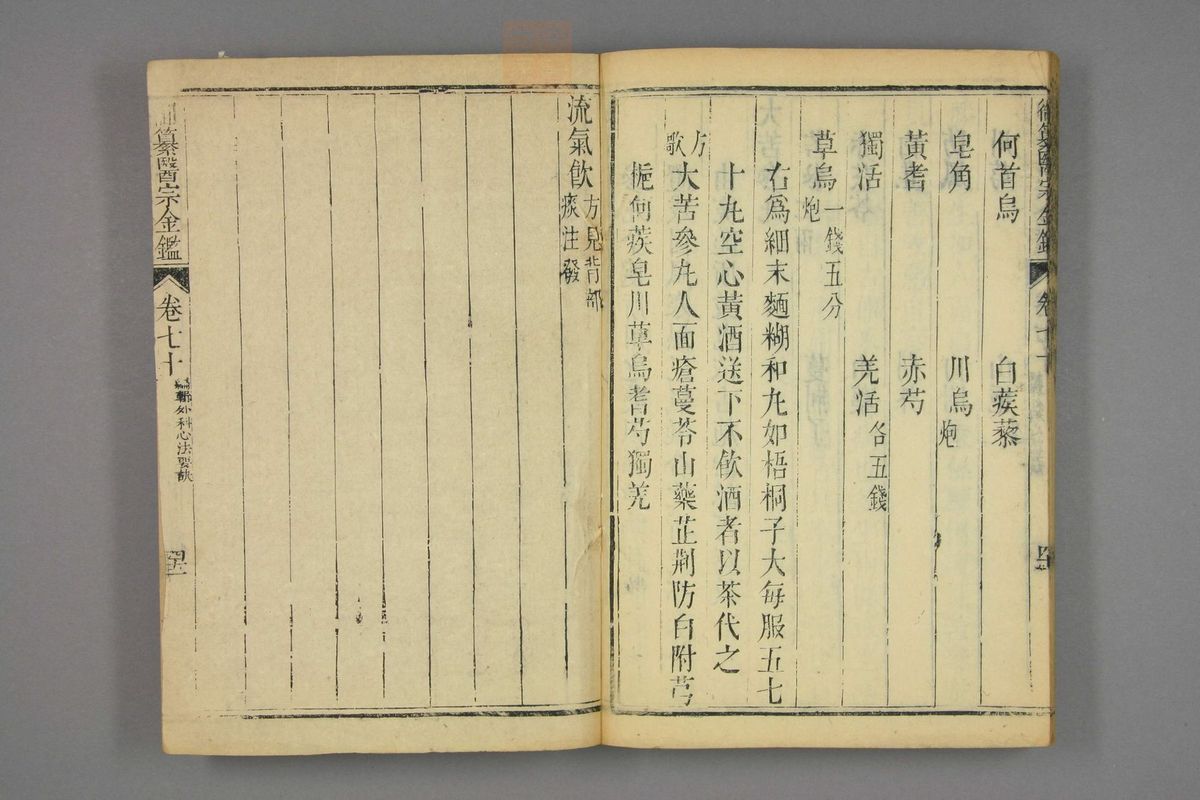 何首烏　白蒺藜
皂角　川烏炮
黃耆　赤芍
獨活　羌活各五錢
草烏一錢五分炮
右爲細末麵糊和丸如梧桐子大每服五七
十丸空心黃酒送下不飲酒者以茶代之
方歌
大苦參丸人面瘡蔓苓山藥芷荊防白附芎
梔何蒺皂川草烏耆芍獨羌
流氣飲方見背部痰注發
御纂醫宗金鑑
卷七十
編輯外科心法要訣